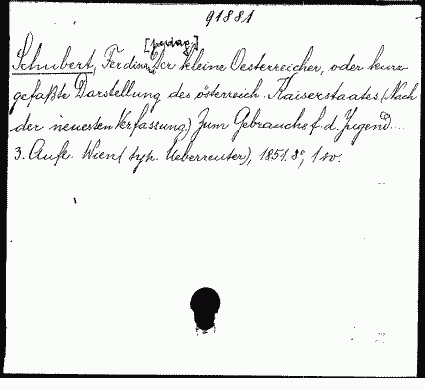 91881
[pedag.]
Schubert, Ferdin., Der kleine Oesterreicher, oder kurz-
gefaßte Darstellung des österreich. Kaiserstaates. (Nach
der neuesten Verfassung.) Zum Gebrauche f. d. Jugend ...
3. Aufl. Wien (typ. Ueberreuter), 1851. 8°, 1 vo.